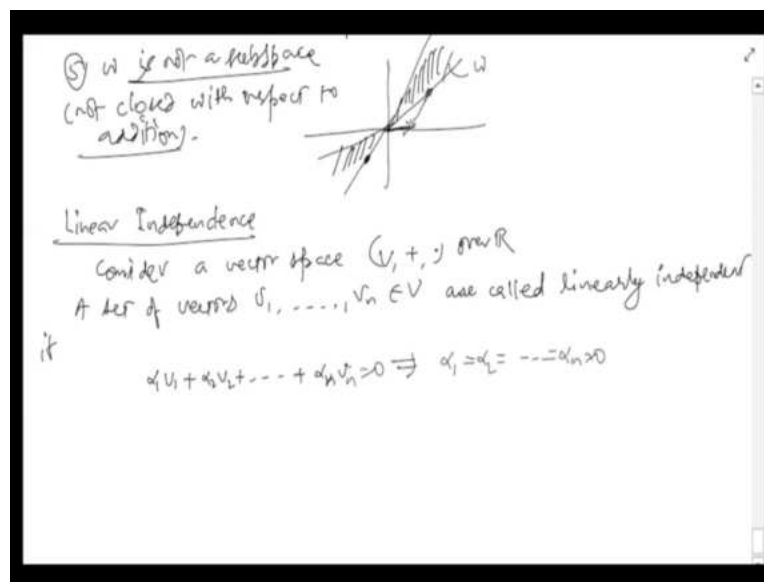 ⑤ W is not a subspace
(not closed with respect to
addition).
W
Linear Independence
Consider a vector space (V, +, ·) over R
A set of vectors v₁, ....., vₙ ∈ V are called linearly independent
if
α₁v₁ + α₂v₂ + .... + αₙvₙ = 0 ⇒ α₁ = α₂ = ---- = αₙ = 0